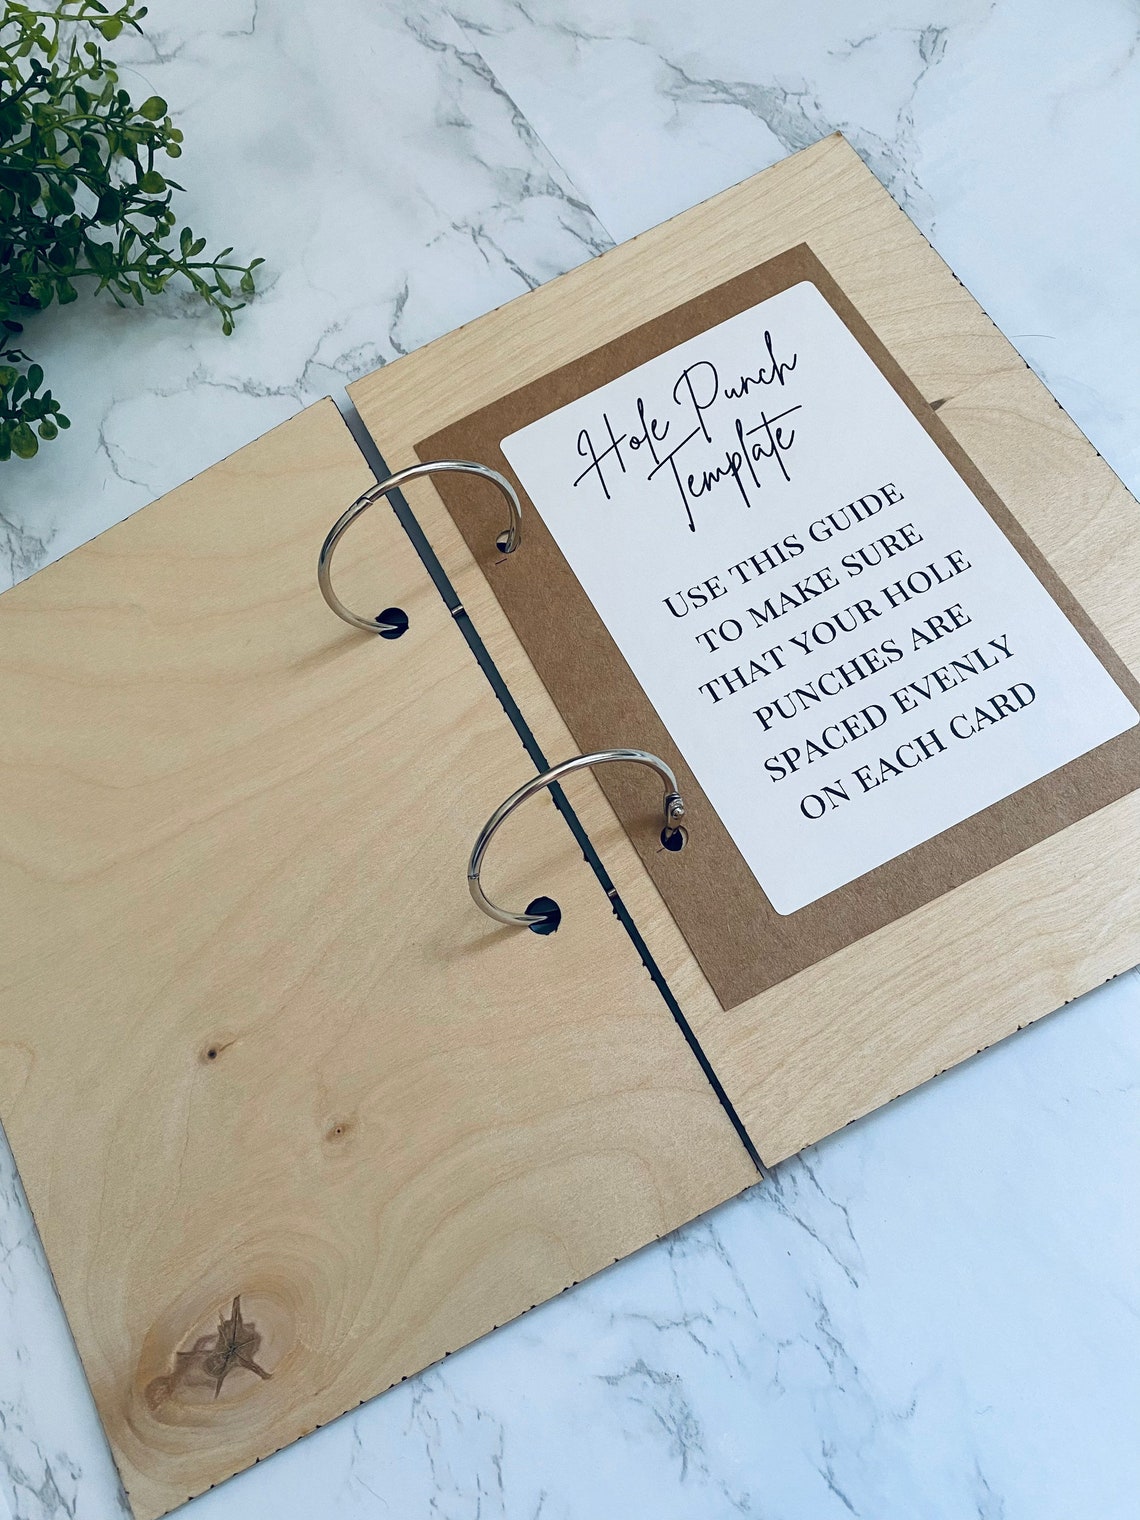 Hole Punch
Template
USE THIS GUIDE
TO MAKE SURE
THAT YOUR HOLE
PUNCHES ARE
SPACED EVENLY
ON EACH CARD